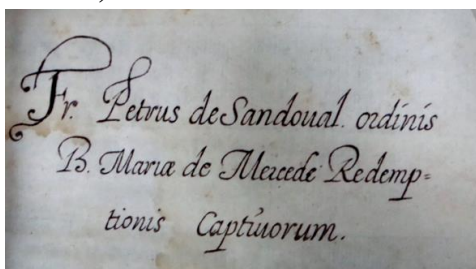 Fr. Petrus de Sandoual. ordinis
B. Mariæ de Mercede Redemp=
tionis Captiuorum.